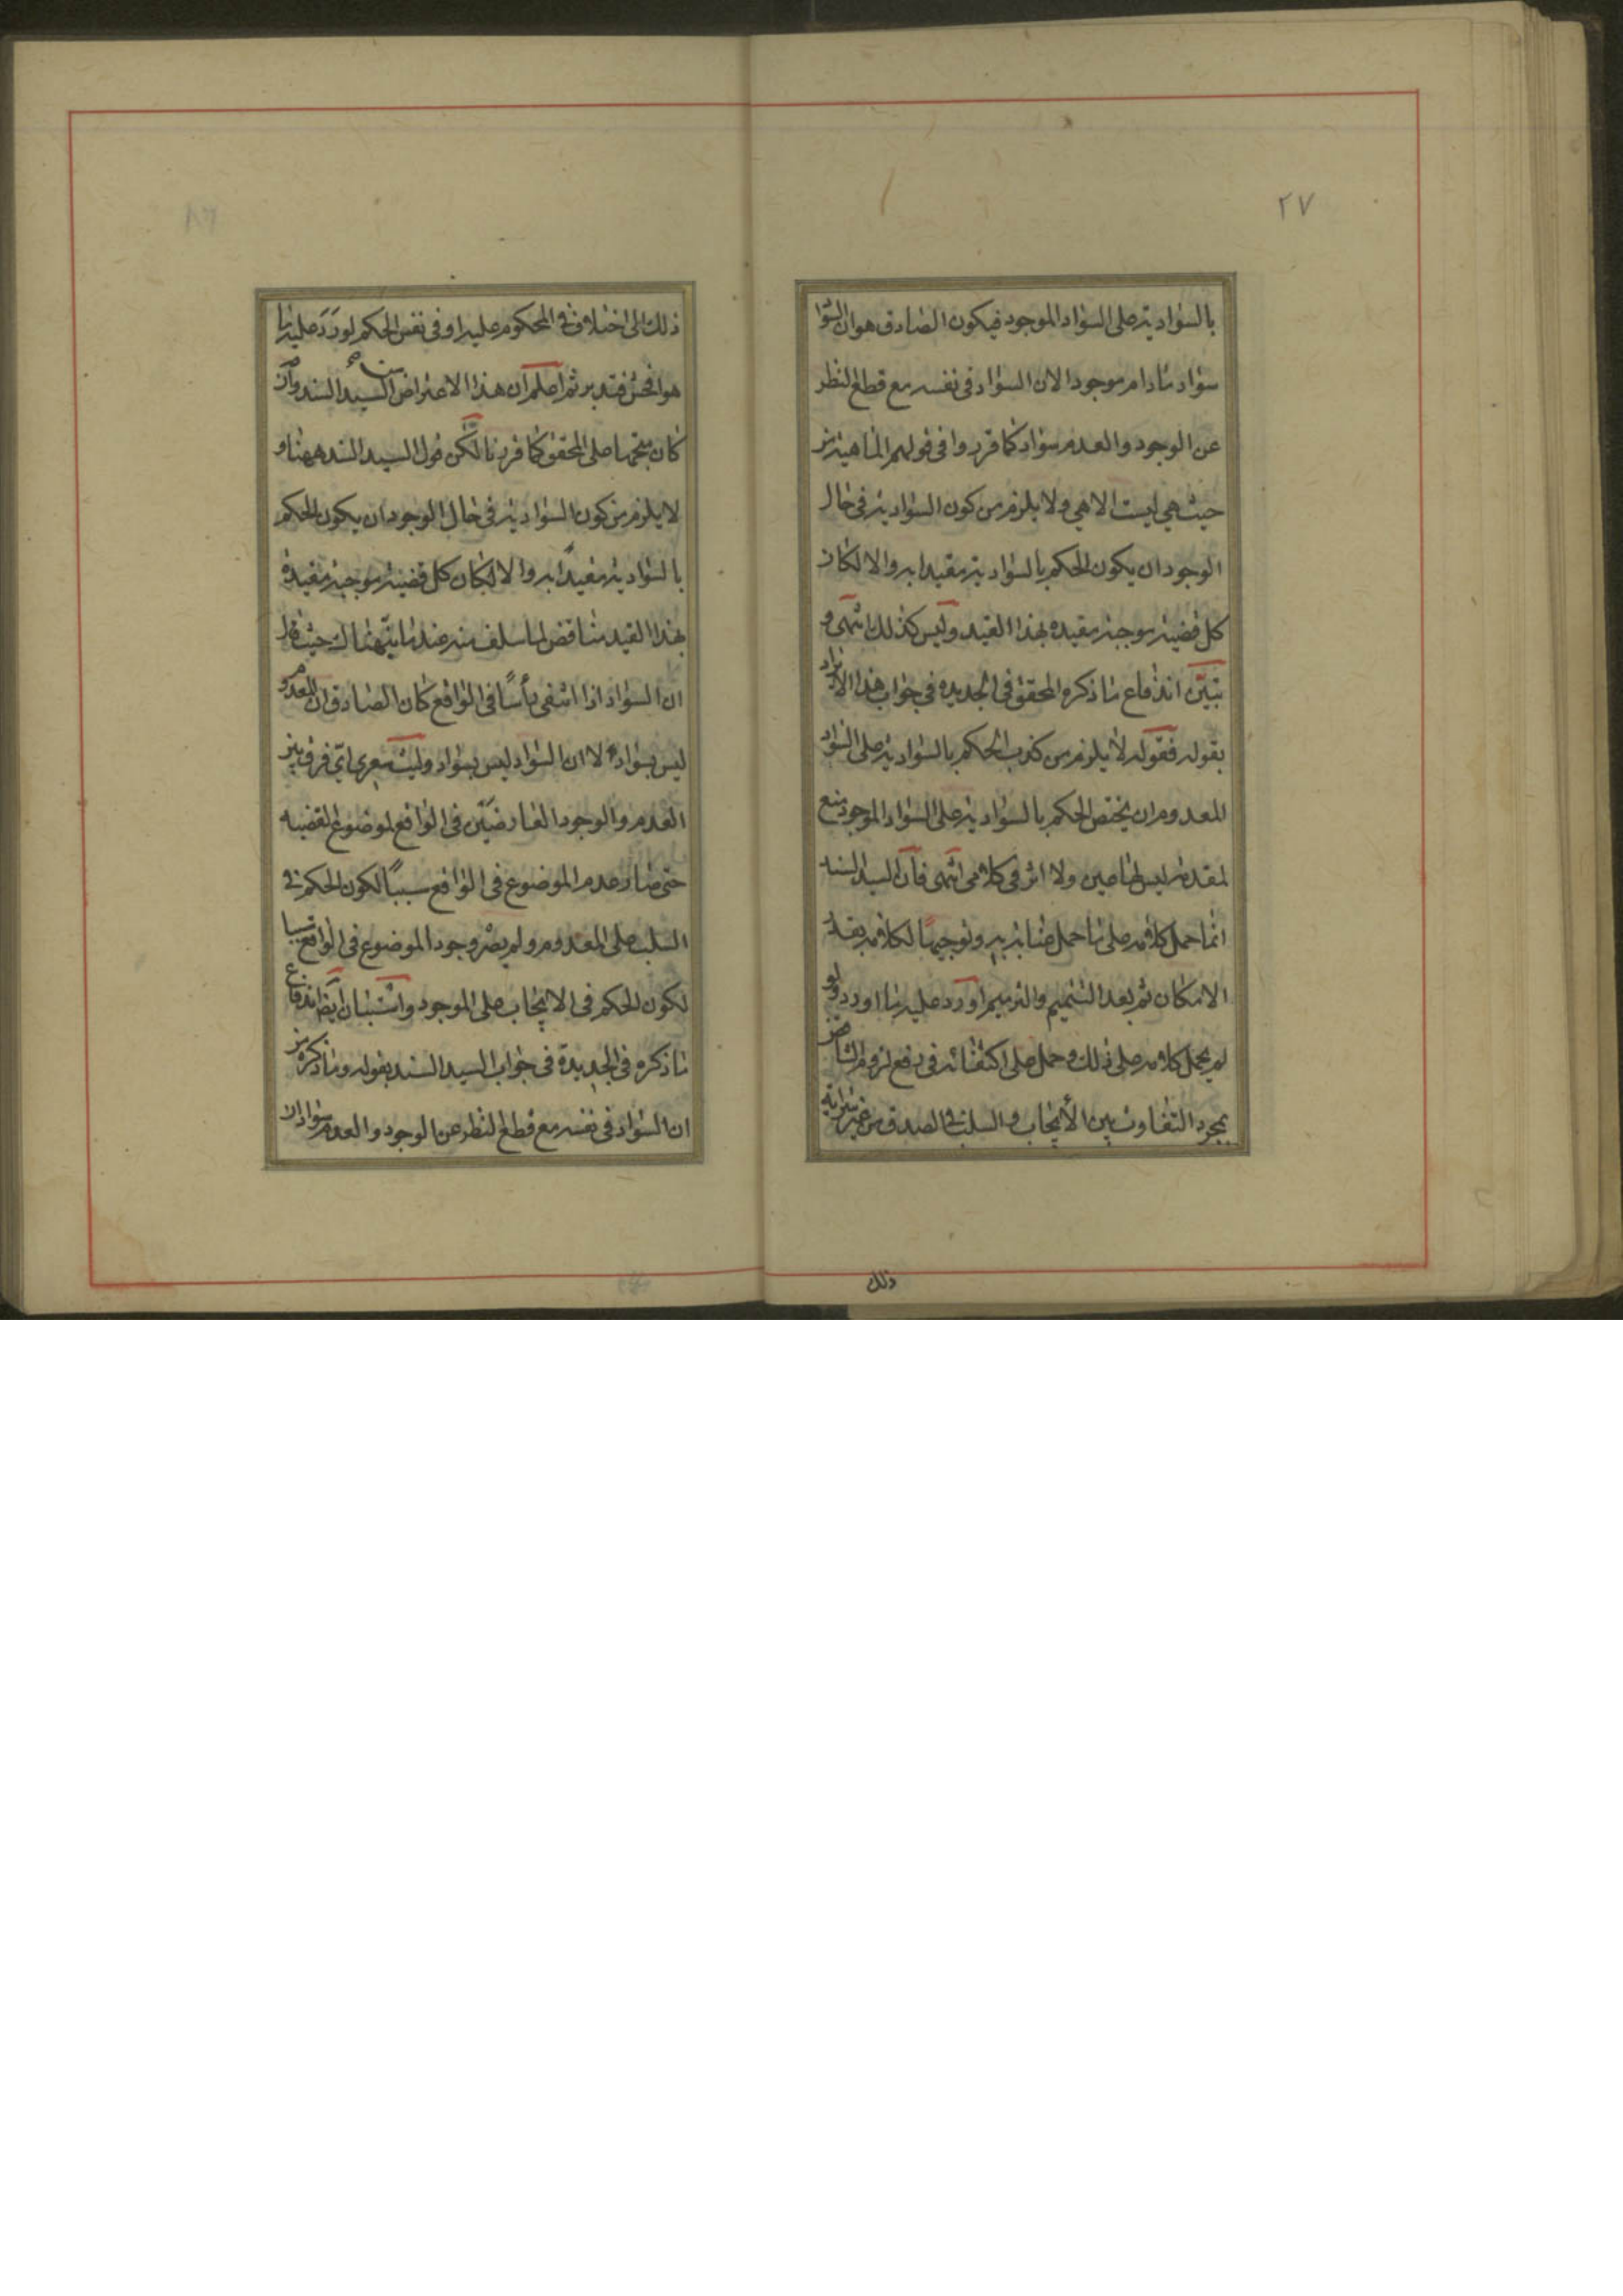 ٢٧
بالسوادية على السواد الموجود فيكون الصادق هو ان السوا
سواد مادام موجودا لان السواد فى نفسه مع قطع النظر
عن الوجود والعدم سواد كما قرروا فى قولهم الماهية من
حيث هي ليست الا هي ولا يلزم من كون السوادية فى حال
الوجود ان يكون الحكم بالسوادية مقيدا به والا لكان
كل قضية موجبة مقيده بهذا القيد وليس كذلك انتهى و
تبيّن اندفاع ما ذكره المحقق فى الجديده في جواب هذا الايراد
بقوله فقوله لا يلزم من كذب الحكم بالسوادية على السواد
المعدوم ان يختص الحكم بالسوادية على السواد الموجود منع
لمقدمة ليس لها عين ولا اثر فى كلامى انتهى فان السيد السند
انما حمل كلامه على ما حمل صابه وتوجيها لكلامه بقدر
الامكان ثم بعد التتميم والترميم اورد عليه ما اورد ولو
لم يحمل كلامه على ذلك وحمل على اكتفائه فى دفع لزوم التناقض
بمجرد التفاوت بين الأيجاب والسلب فى الصدق من غير
ذلك
ذلك الى اختلاف فى المحكوم عليه او فى نفس الحكم لورَدَ عليه ما
هو افحش فتدبر ثم اعلم ان هذا الاعتراض من السيد السند وان
كان متجها على المحقق كما قررنا لكن قول السيد السند ههنا و
لا يلزم من كون السوادية فى حال الوجود ان يكون الحكم
بالسوادية مقيدًا به والا لكان كل قضية موجبة مقيدة
بهذا القيد مناقض لما سلف منه عند ما بيّنه هنالك حيث قال
ان السواد اذا انتفى رأسًا فى الواقع كان الصادق ان المعدوم
ليس بسواد لا ان السواد ليس بسواد وليت شعرى اىّ فرق بين
العدم والوجود العارضَيْن فى الواقع لموضوع القضيه
حتى صار عدم الموضوع فى الواقع سببًا لكون الحكم فى
السلب على المعدوم ولم يصْر وجود الموضوع فى الواقع سببا
لكون الحكم فى الايجاب على الموجود واستبان ايضا اندفاع
ما ذكره فى الجديدة فى جواب السيد السند بقوله وما ذكره من
ان السواد فى نفسه مع قطع النظر عن الوجود والعدم سواد ان